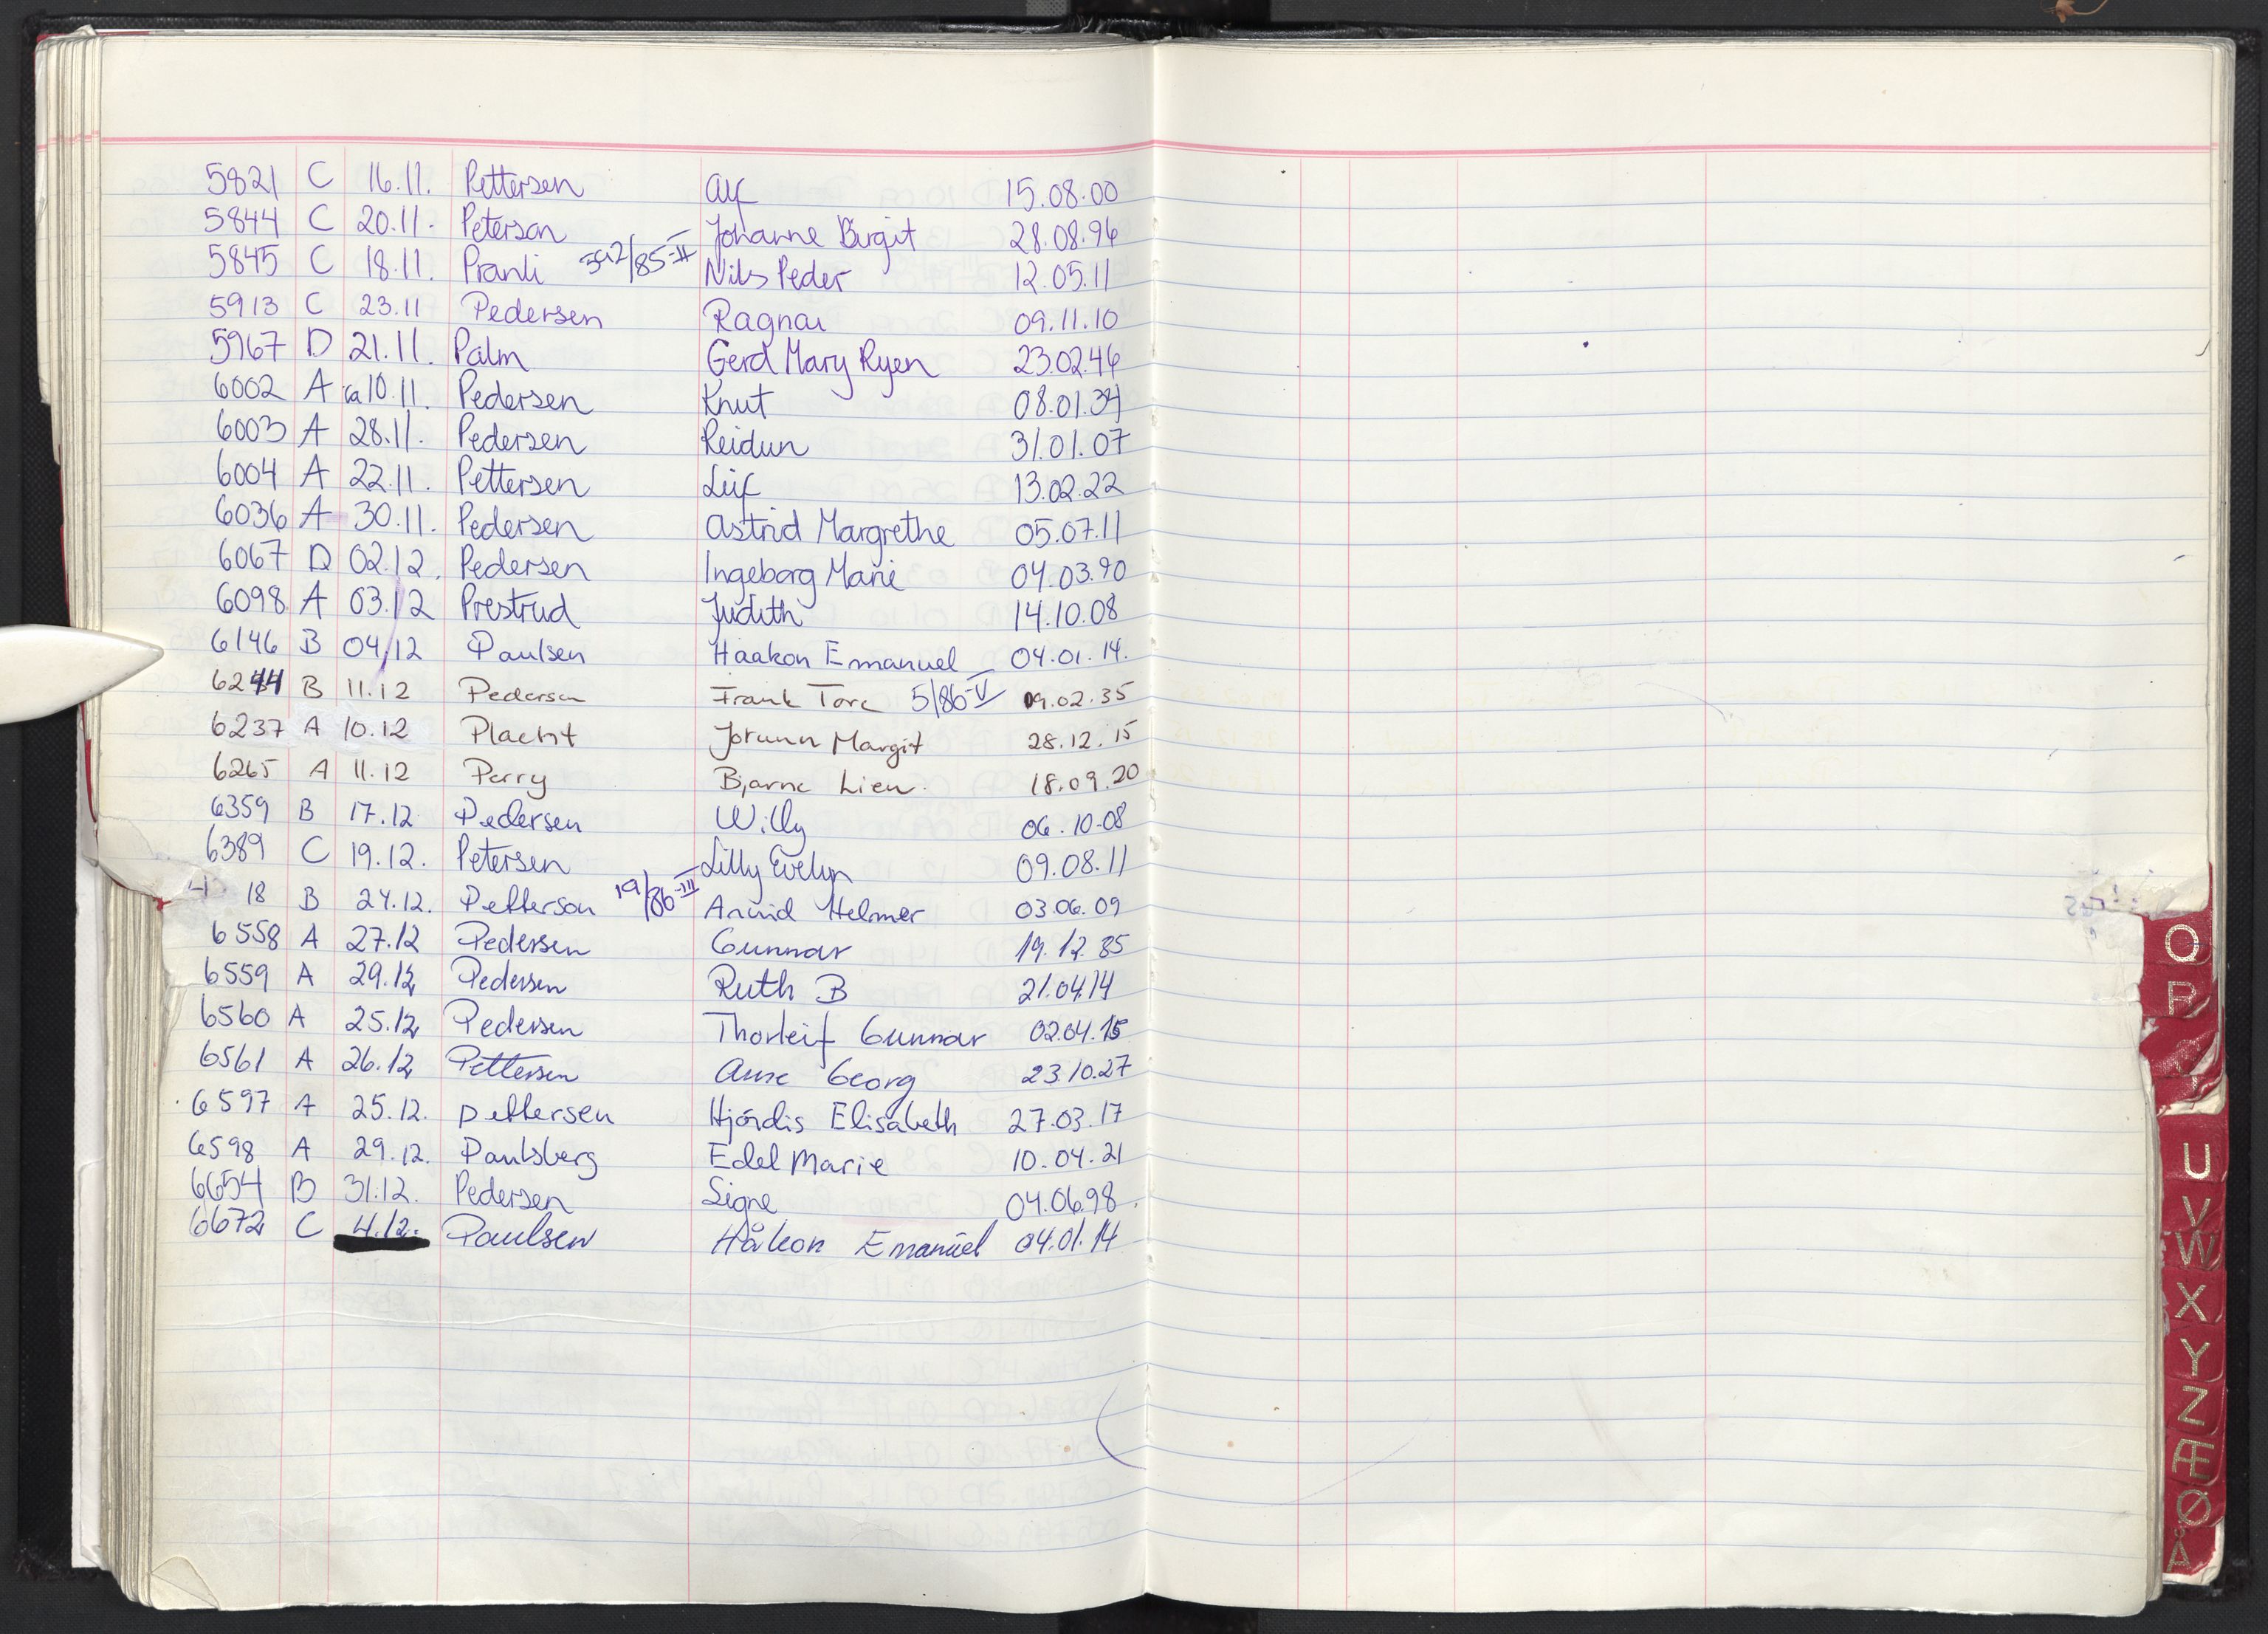 5821 C 16.11. Pettersen Alf 15.08.00
5844 C 20.11. Peterson Johanne Birgit 28.08.96
5845 C 18.11. Pranli 342/85-II Nils Peder 12.05.11
5913 C 23.11 Pedersen Ragnar 09.11.10
5967 D 21.11. Palm Gerd Mary Ryen 23.02.46
6002 A ca 10.11. Pedersen Knut 08.01.34
6003 A 28.11. Pedersen Reidun 31.01.07
6004 A 22.11. Pettersen Leif 13.02.22
6036 A 30.11. Pedersen Astrid Margrethe 05.07.11
6067 D 02.12. Pedersen Ingeborg Marie 04.03.90
6098 A 03.12 Prestrud Judith 14.10.08
6146 B 04/12 Paulsen Haakon Emanuel 04.01.14.
6244 B 11.12 Pedersen Frank Tore 5/86-V 09.02.35
6237 A 10.12 Placht Jorunn Margit 28.12.15
6265 A 11.12 Perry Bjarne Lien. 18.09.20
6359 B 17.12 Pedersen Willy 06.10-08
6389 C 19.12. Petersen Lilly Evelyn 09.08.11
18 B 24.12. Petterson 19/86-III Arvid Helmer 03.06.09
6558 A 27.12 Pedersen Gunnar 19.12.35
6559 A 29.12 Pedersen Ruth B 21.04.14
6560 A 25.12 Pedersen Thorleif Gunnar 02.04.15
6561 A 26.12 Pettersen Georg 23.10.27
6597 A 25.12. Pettersen Hjördis Elisabeth 27.03.17
6598 A 29.12. Paulsberg Edel Marie 10.04.21
6654 B 31.12. Pedersen Signe 04.06.98.
6672 C 4.12. Paulsen Håkon Emanuel 04.01.14
Q
P
U
V
W
X
Y
Z
Æ
Ø
Å